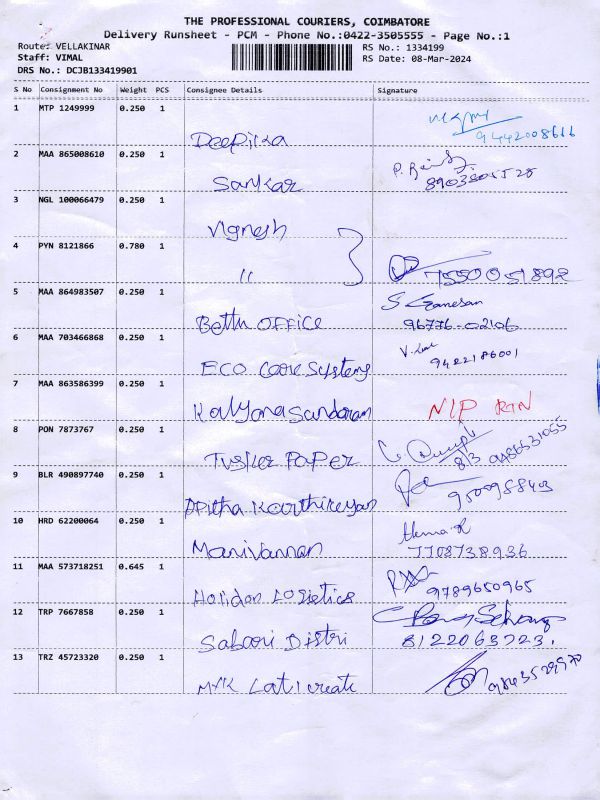 THE PROFESSIONAL COURIERS, COIMBATORE
Delivery Runsheet - PCM - Phone No.:0422-3505555 - Page No.:1
Route: VELLAKINAR
RS No.: 1334199
Staff: VIMAL
RS Date: 08-Mar-2024
DRS No.: DCJB133419901
S No Consignment No Weight PCS Consignee Details Signature
1 MTP 1249999 0.250 1
Deepika 9442008611
2 MAA 865008610 0.250 1
Sankar
3 NGL 100066479 0.250 1
Vignesh
4 PYN 8121866 0.780 1
" 7550051892
5 MAA 864983507 0.250 1
S Ganesan
OFFICE 96776-02106
6 MAA 703466868 0.250 1
ECO Care Systems 9422186001
7 MAA 863586399 0.250 1
Kalyanasundaram NIP RTN
8 PON 7873767 0.250 1
Tusker Paper
9 BLR 490897740 0.250 1
Karthikeyan
10 HRD 62200064 0.250 1
Manivannan 7708738936
11 MAA 573718251 0.645 1
Logistics 9789650965
12 TRP 7667858 0.250 1
Sabari Distri 8122063723.
13 TRZ 45723320 0.250 1
MYK Laticrete